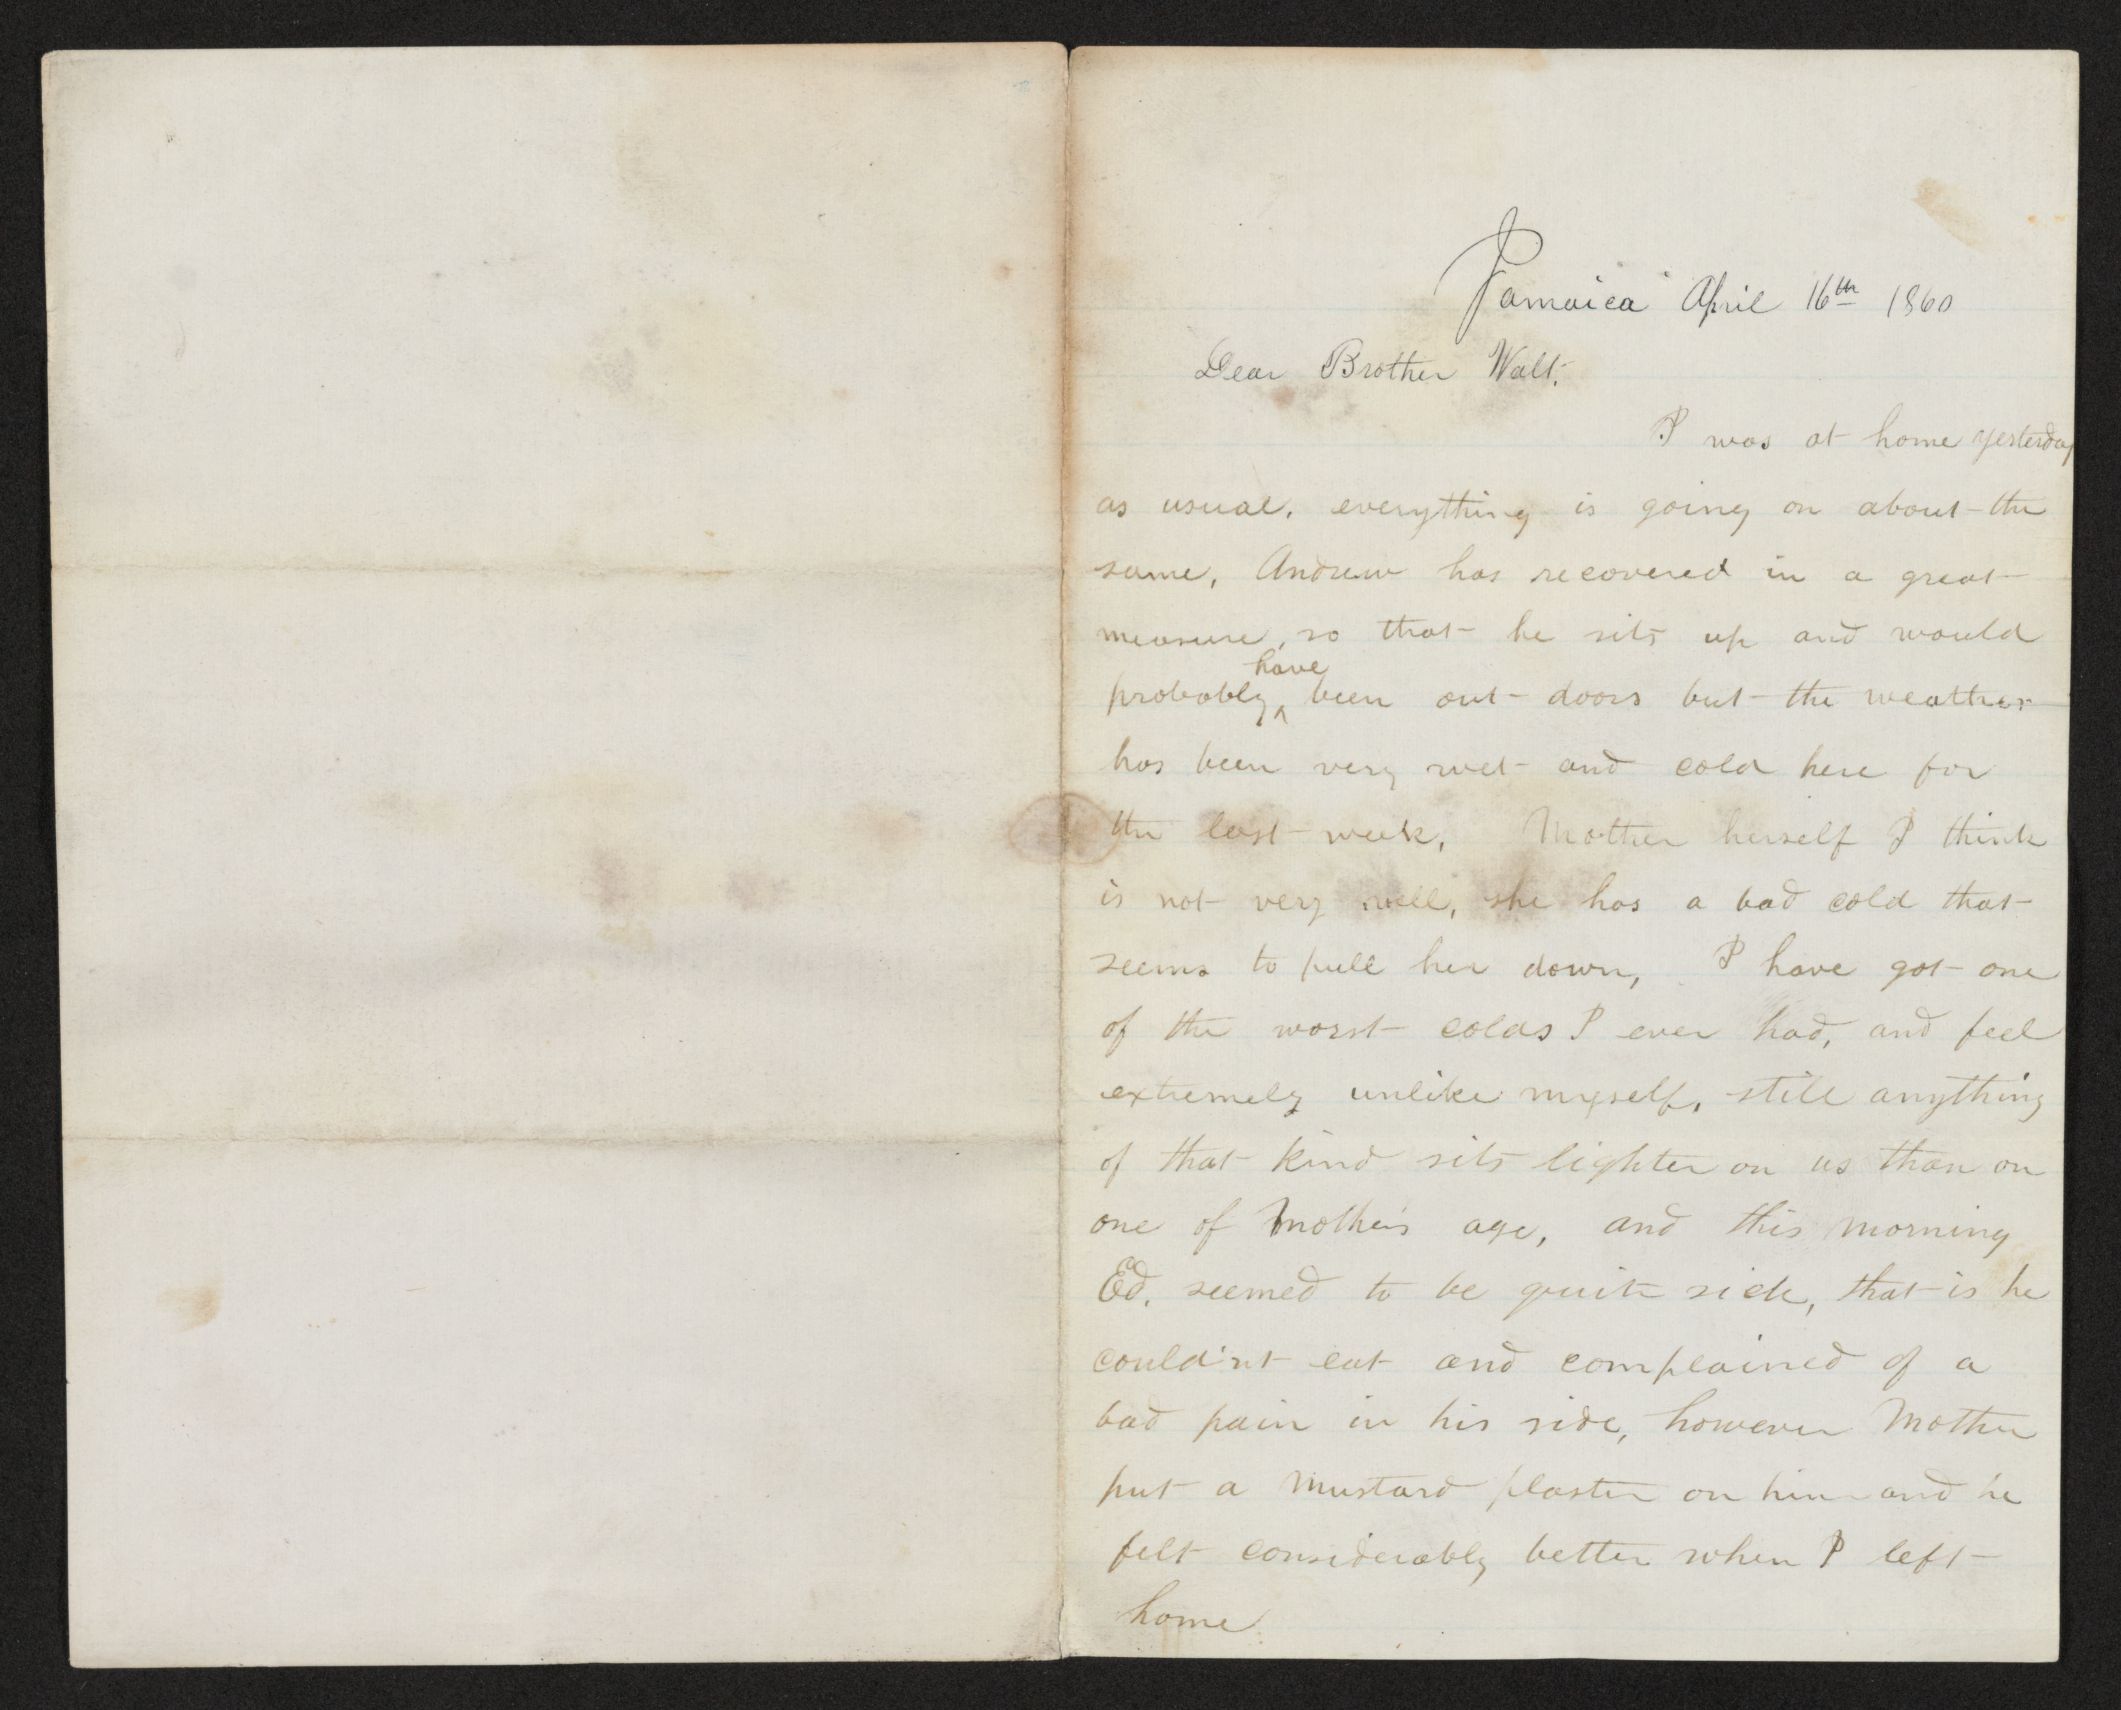 Jamaica April 16th 1860
Dear Brother Walt.
I was at home yesterday
as usual. everything is going on about the
same, Andrew has recovered in a great
measure, so that he sits up and would
probably have been out doors but the weather
has been very wet and cold here for
the last week. Mother herself I think
is not very well, she has a bad cold that
seems to pull her down, I have got one
of the worst colds I ever had, and feel
extremely unlike myself, still anything
of that kind sits lighter on us than on
one of Mother's age, and this morning
Ed. seemed to be quite sick, that is he
could'nt eat and complained of a
bad pain in his side, however Mother
put a mustard plaster on him and he
felt considerably better when I left
home